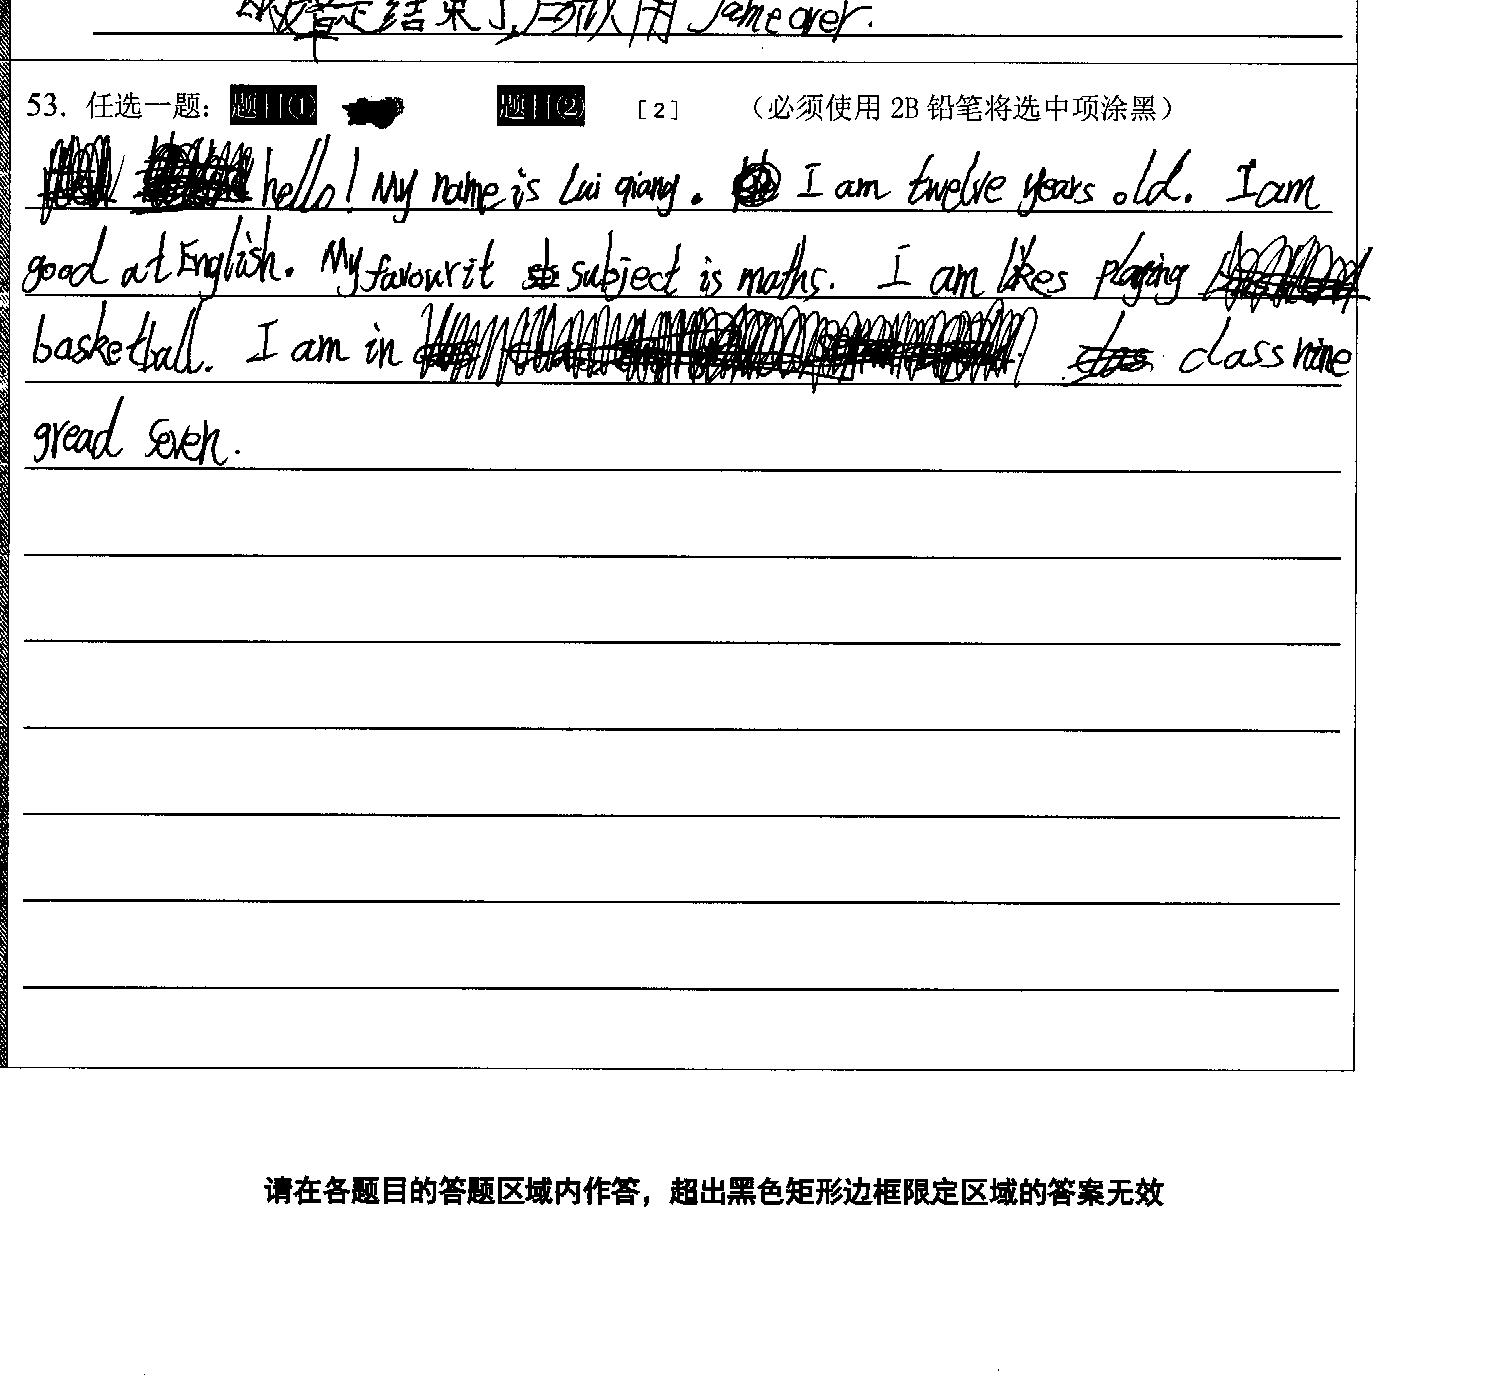 结束了,所以用 Jame over.
53. 任选一题: 题目① 题目② [2] （必须使用 2B 铅笔将选中项涂黑）
hello! My name is Lui qiang. I am twelve years old. I am
good at English. My favourit subject is maths. I am likes playing
basketball. I am in class nine
gread seven.
请在各题目的答题区域内作答，超出黑色矩形边框限定区域的答案无效